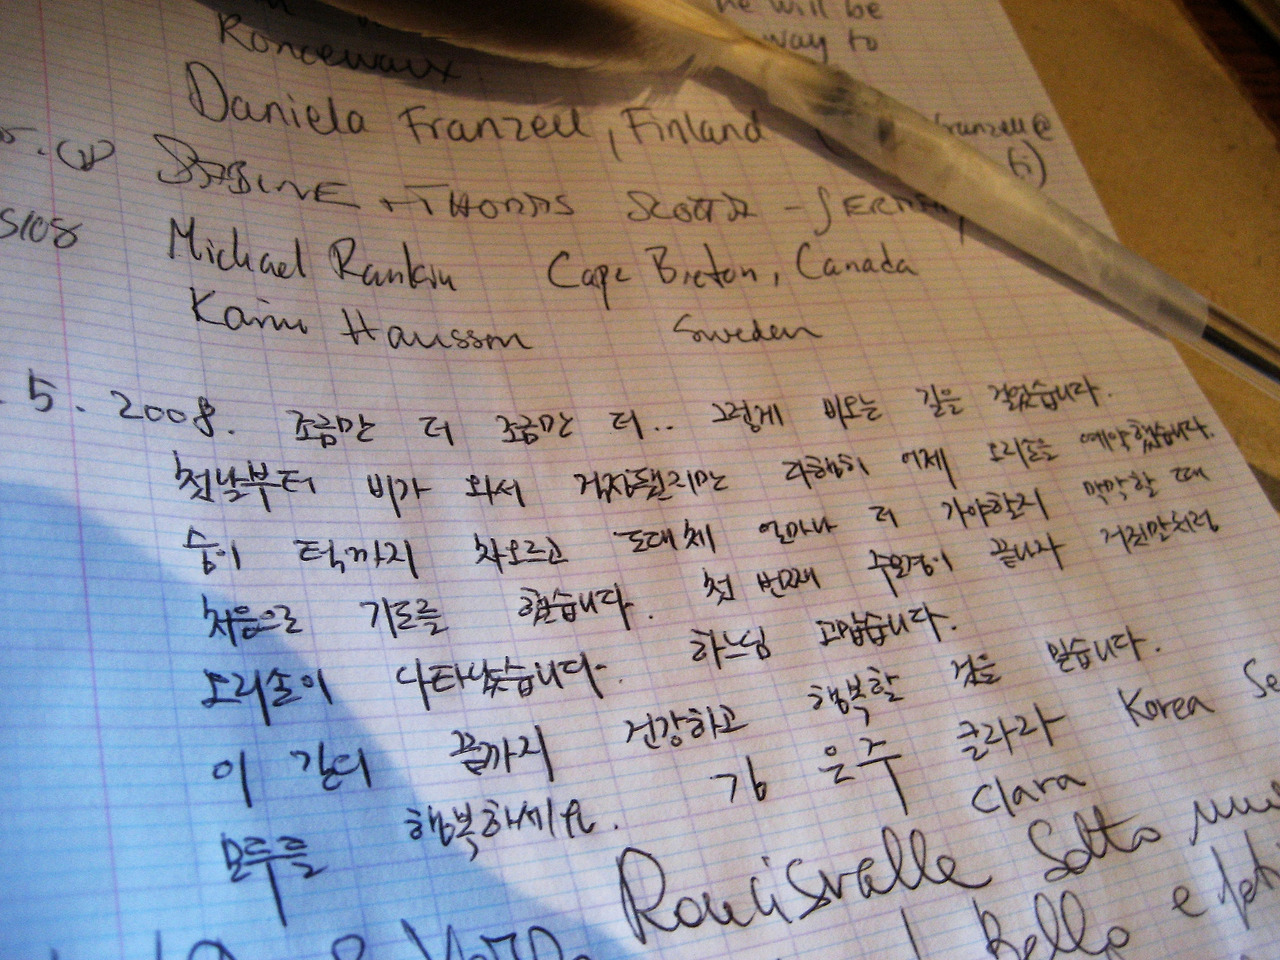 he will be
Roncevaux way to
Daniela Franzell, Finland franzell@
5. fi)
SABINE + THOMAS
5/08 Michael Rankin Cape Breton, Canada
Karin Hansson Sweden
. 5. 2008. 조금만 더 조금만 더.. 그렇게 비오는 길을 걸었습니다.
첫날부터 비가 와서 걱정됐지만 다행히 어제 오리손을 예약했습니다.
숨이 턱까지 차오르고 도대체 얼마나 더 가야할지 막막할 때
처음으로 기도를 했습니다. 첫 번째 수요경이 끝나자 거짓말처럼
오리손이 나타났습니다. 하느님 고맙습니다.
이 길의 끝까지 건강하고 행복할 것을 믿습니다.
모두들 행복하세요. 김 은주 클라라 Korea Se
Clara
Roncisvalle Sotto
Bello e